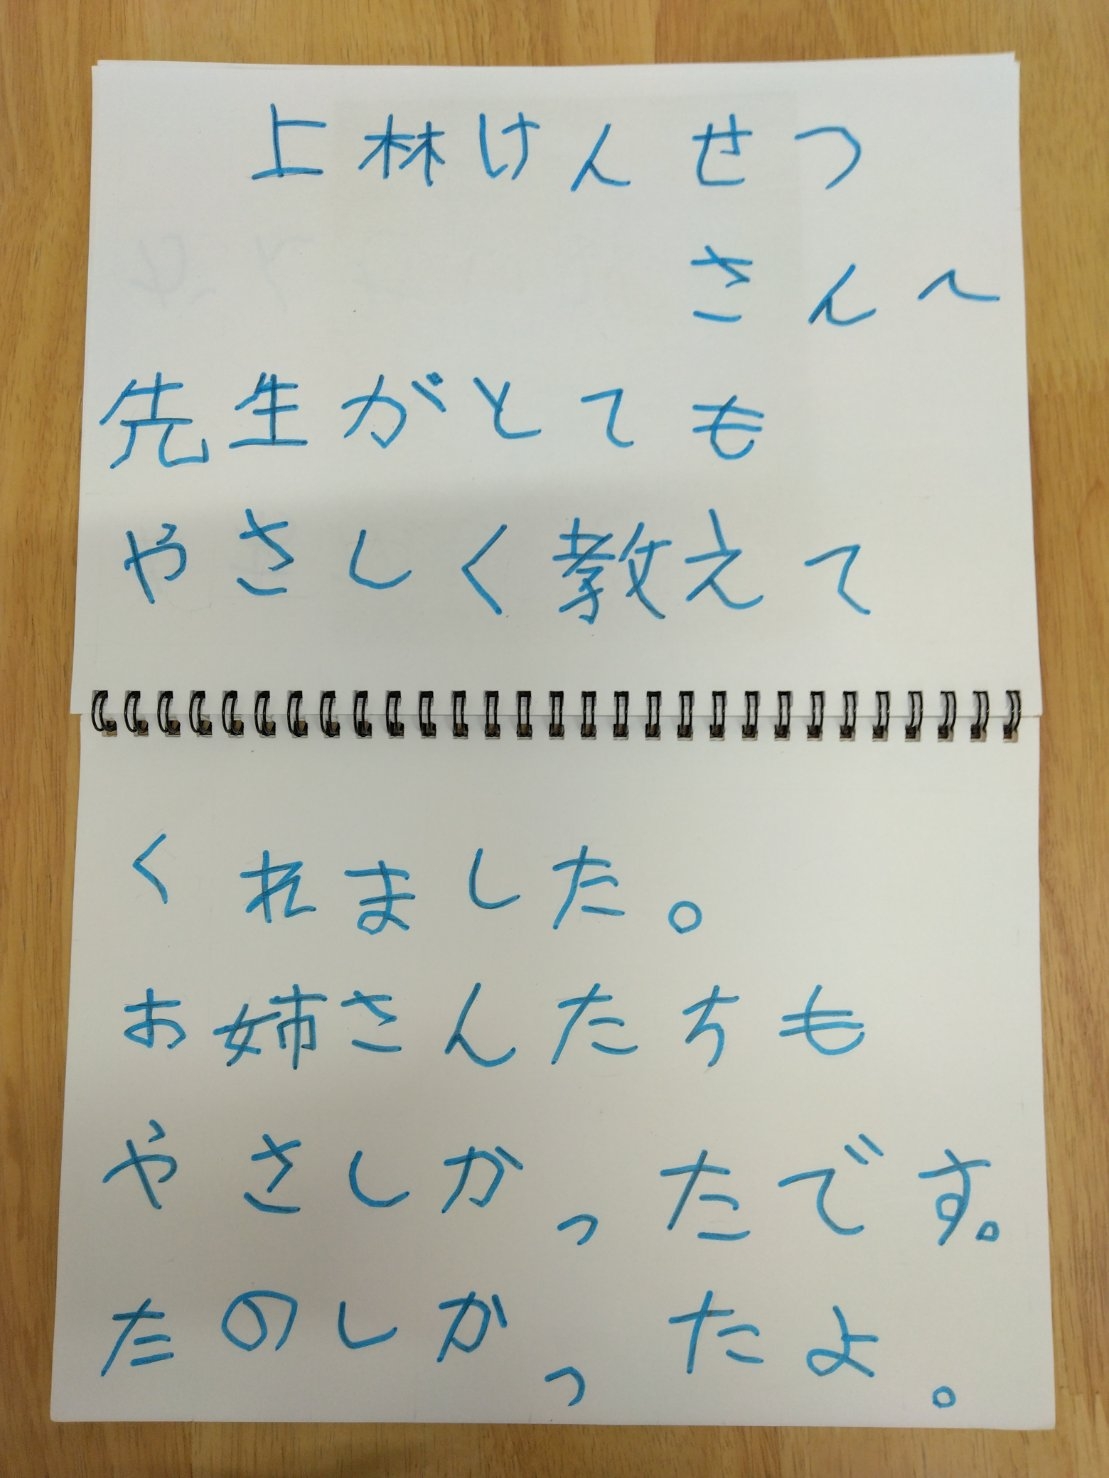 上林けんせつ
さんへ
先生がとても
やさしく教えて
くれました。
お姉さんたちも
やさしかったです。
たのしかったよ。